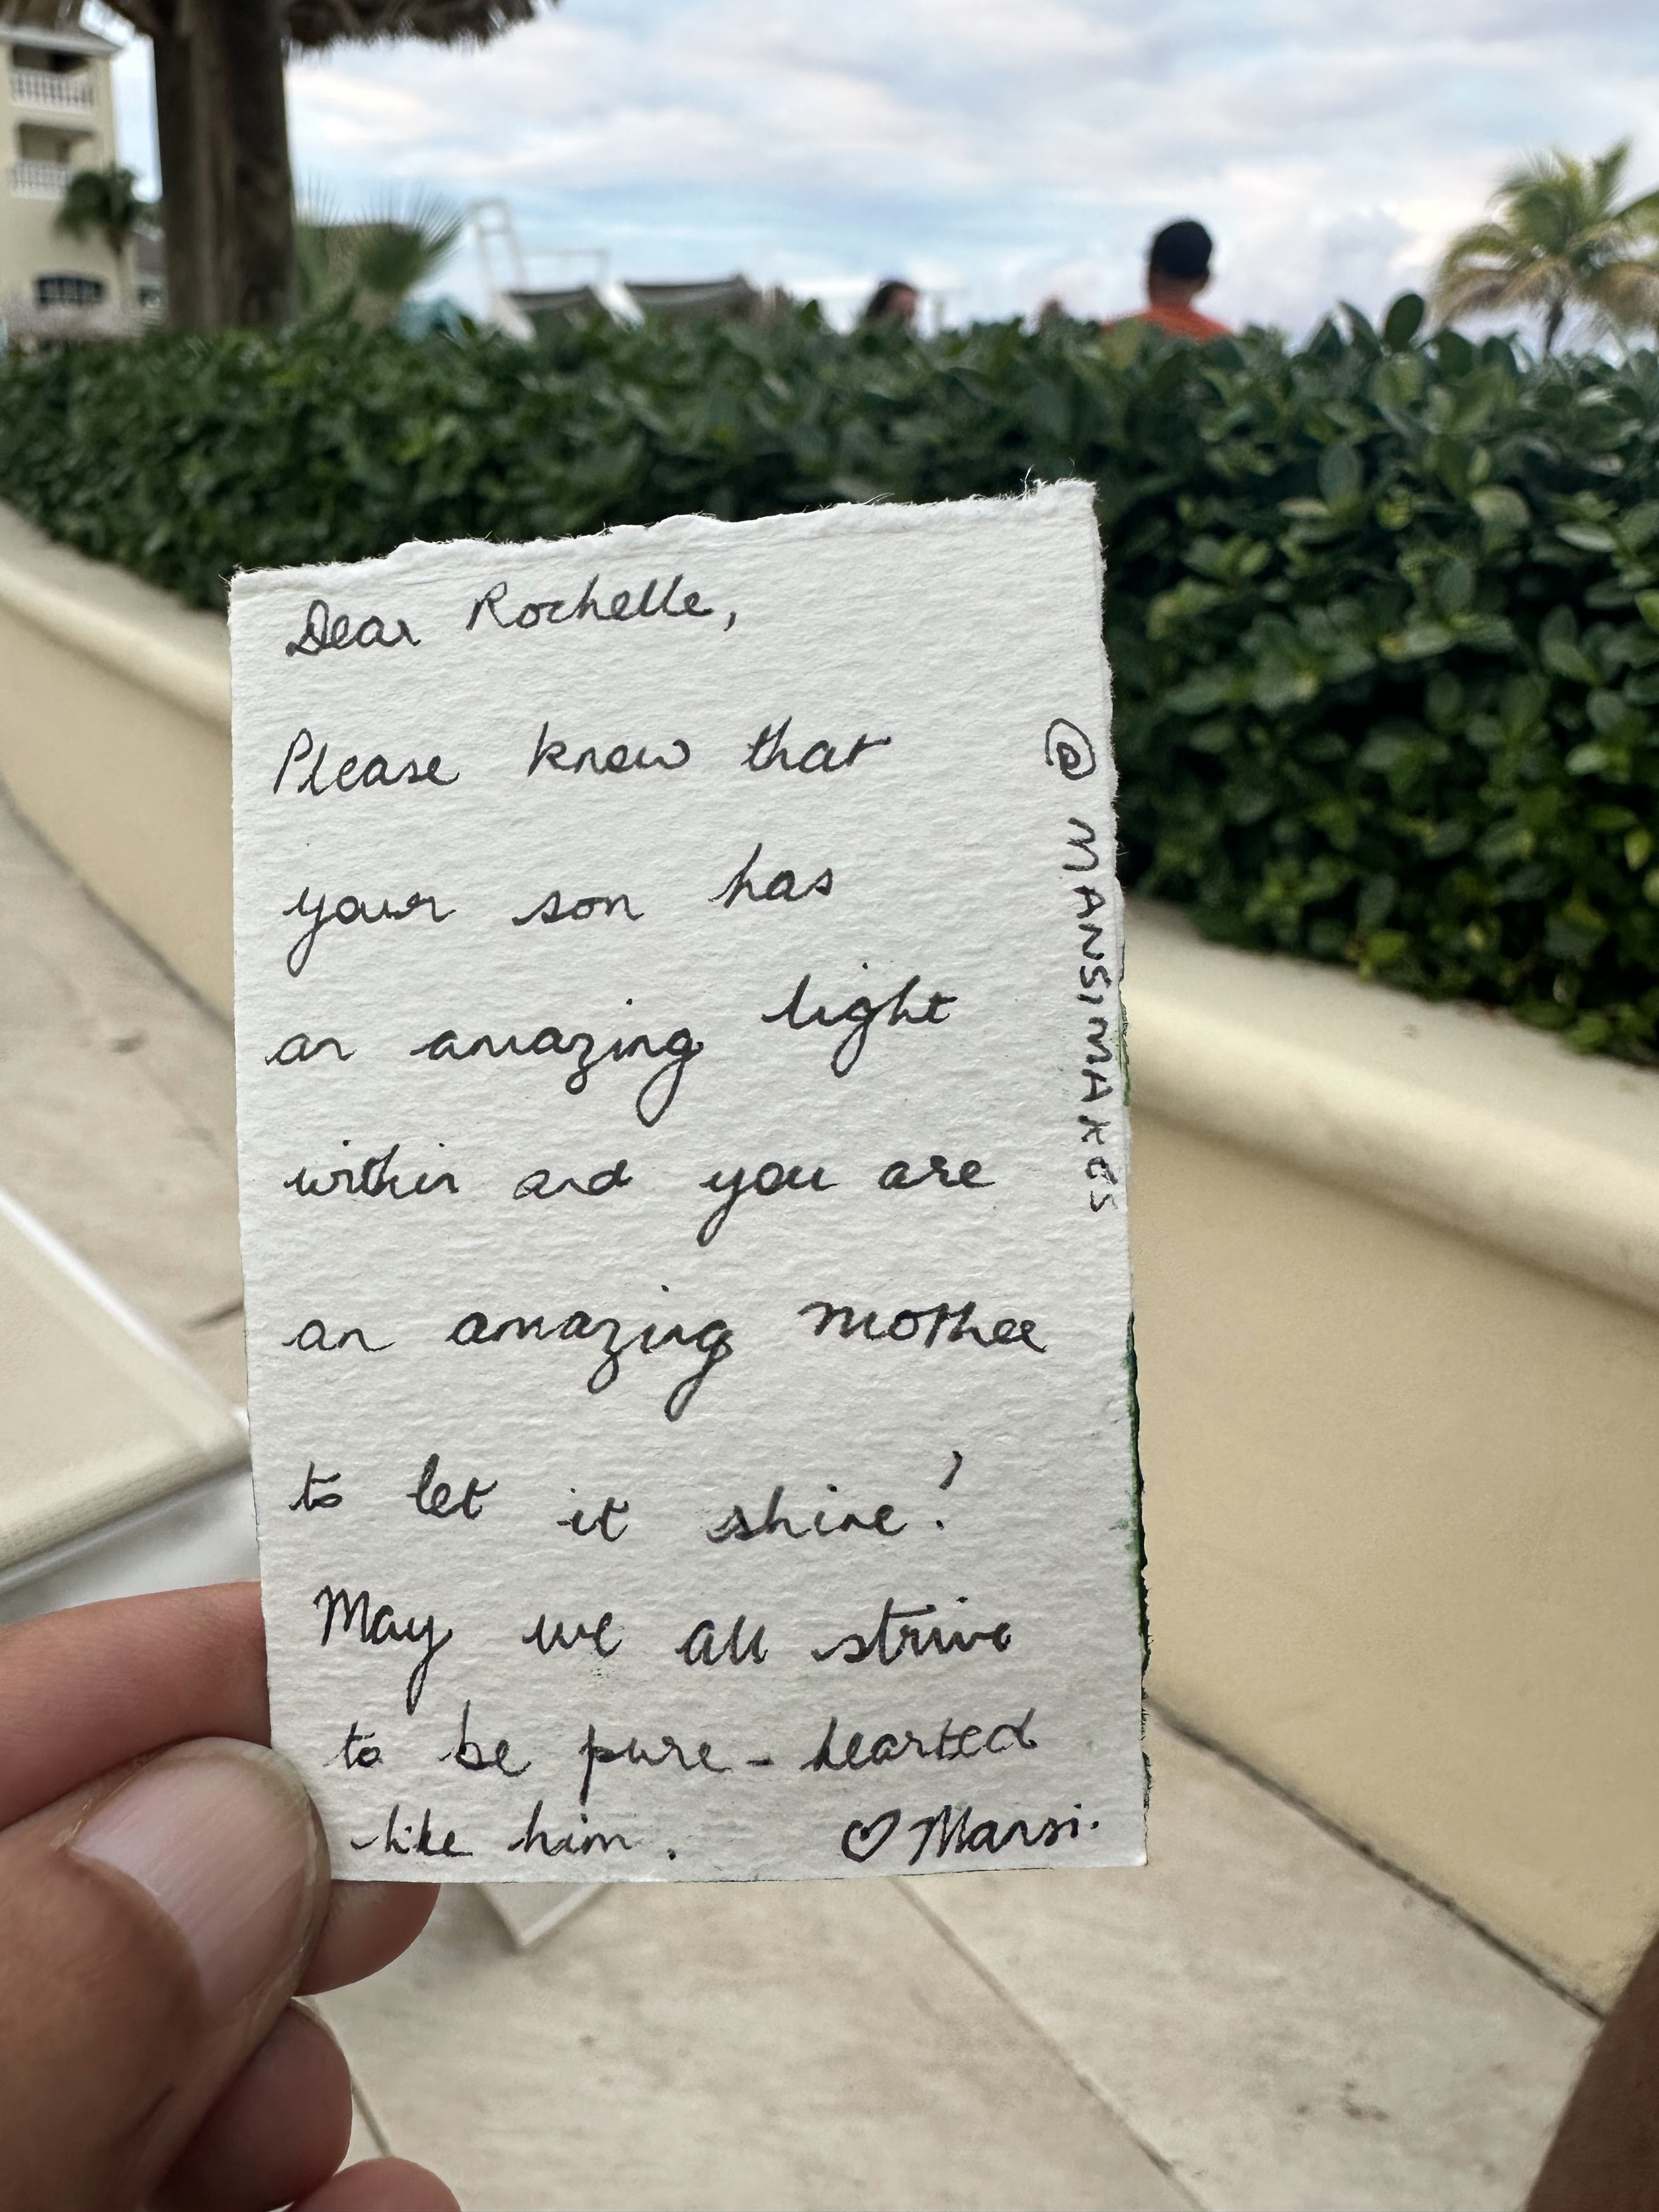 Dear Rochelle,
Please know that
your son has
an amazing light
within and you are
an amazing mother
to let it shine!
May we all strive
to be pure-hearted
like him. ♡ Mansi.
@MANSIMAKES